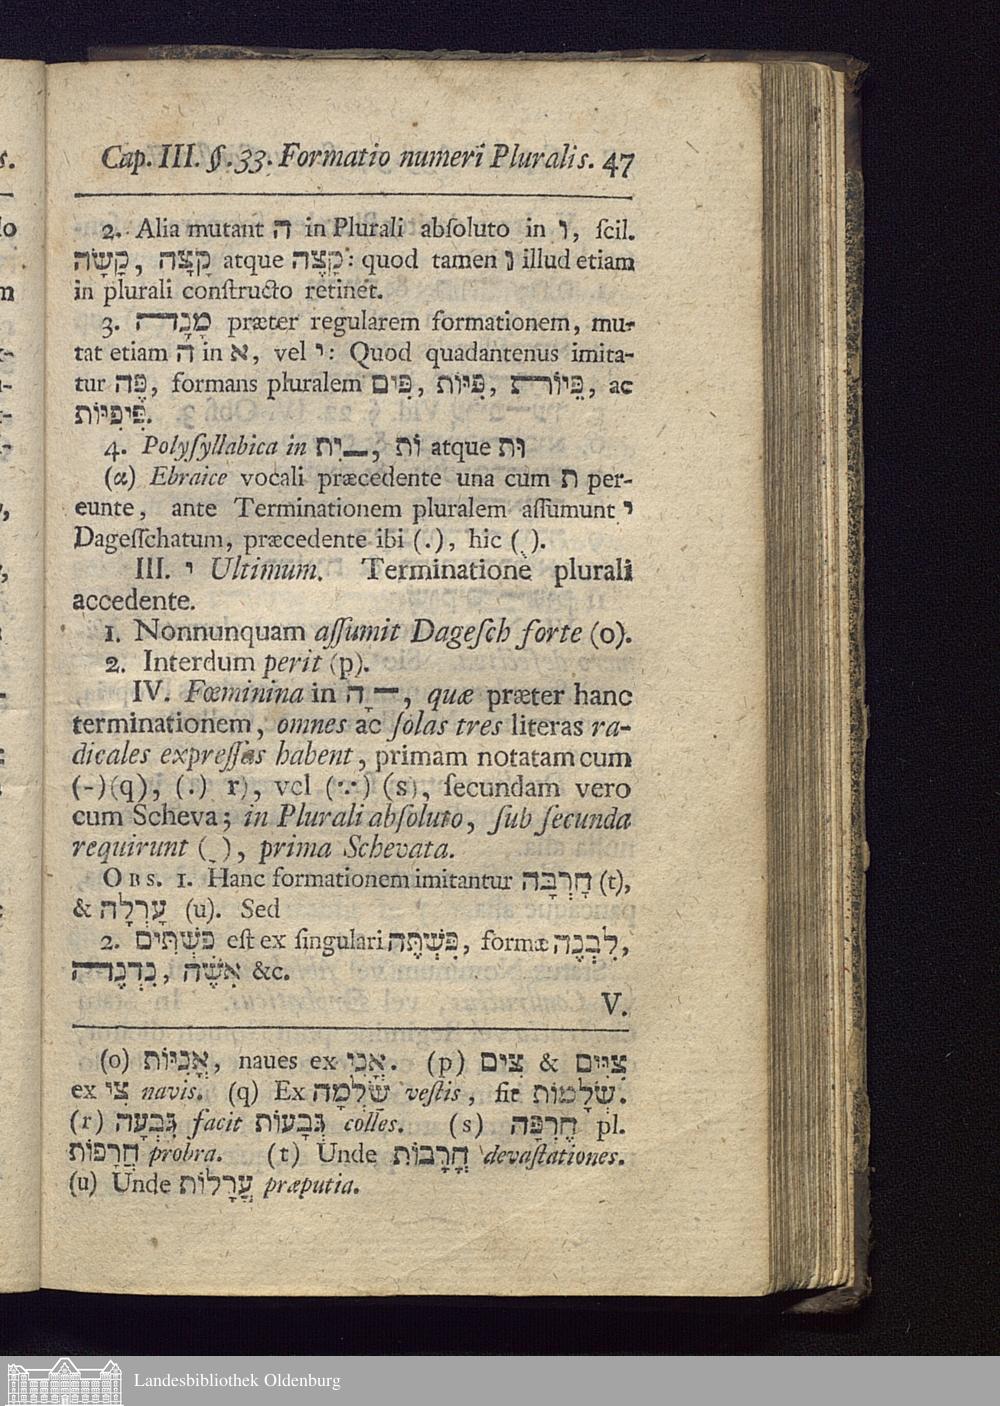 Cap. III. §. 33. Formatio numeri Pluralis. 47
2. Alia mutant ה in Plurali abſoluto in ו, ſcil.
קָשָׂה, קָצָה atque קָצֶה: quod tamen ו illud etiam
in plurali conſtructo retinet.
3. מָנָה præter regularem formationem, mu-
tat etiam ה in א, vel י: Quod quadantenus imita-
tur פֶּה, formans pluralem פִּים, פִּיּוֹת, פֵּיוֹת, ac
פִּיפִיּוֹת.
4. Polyſyllabica in ִית, וֹת atque וּת
(α) Ebraice vocali præcedente una cum ת per-
eunte, ante Terminationem pluralem aſſumunt י
Dageſſchatum, præcedente ibi (.), hic (ֻ).
III. י Ultimum. Terminatione plurali
accedente.
1. Nonnunquam aſſumit Dageſch forte (o).
2. Interdum perit (p).
IV. Fœminina in ָה, quæ præter hanc
terminationem, omnes ac ſolas tres literas ra-
dicales expreſſas habent, primam notatam cum
(-)(q), (.) r), vel (∵) (s), ſecundam vero
cum Scheva; in Plurali abſoluto, ſub ſecunda
requirunt (ָ), prima Schevata.
OBS. 1. Hanc formationem imitantur חָרְבָּה (t),
& עָרְלָה (u). Sed
2. פִּשְׁתִּים eſt ex ſingulari פִּשְׁתֶּה, formæ לִבְנֶה,
נִדְנֶה, אִשֶּׁה &c.
V.
(o) אֳנִיּוֹת, naues ex אֳנִי. (p) צִים & צִיִּים
ex צִי navis. (q) Ex שַׂלְמָה veſtis, fit שְׂלָמוֹת.
(r) גִּבְעָה facit גְּבָעוֹת colles. (s) חֶרְפָּה pl.
חֲרָפוֹת probra. (t) Unde חֳרָבוֹת devaſtationes.
(u) Unde עֳרָלוֹת præputia.
Landesbibliothek Oldenburg